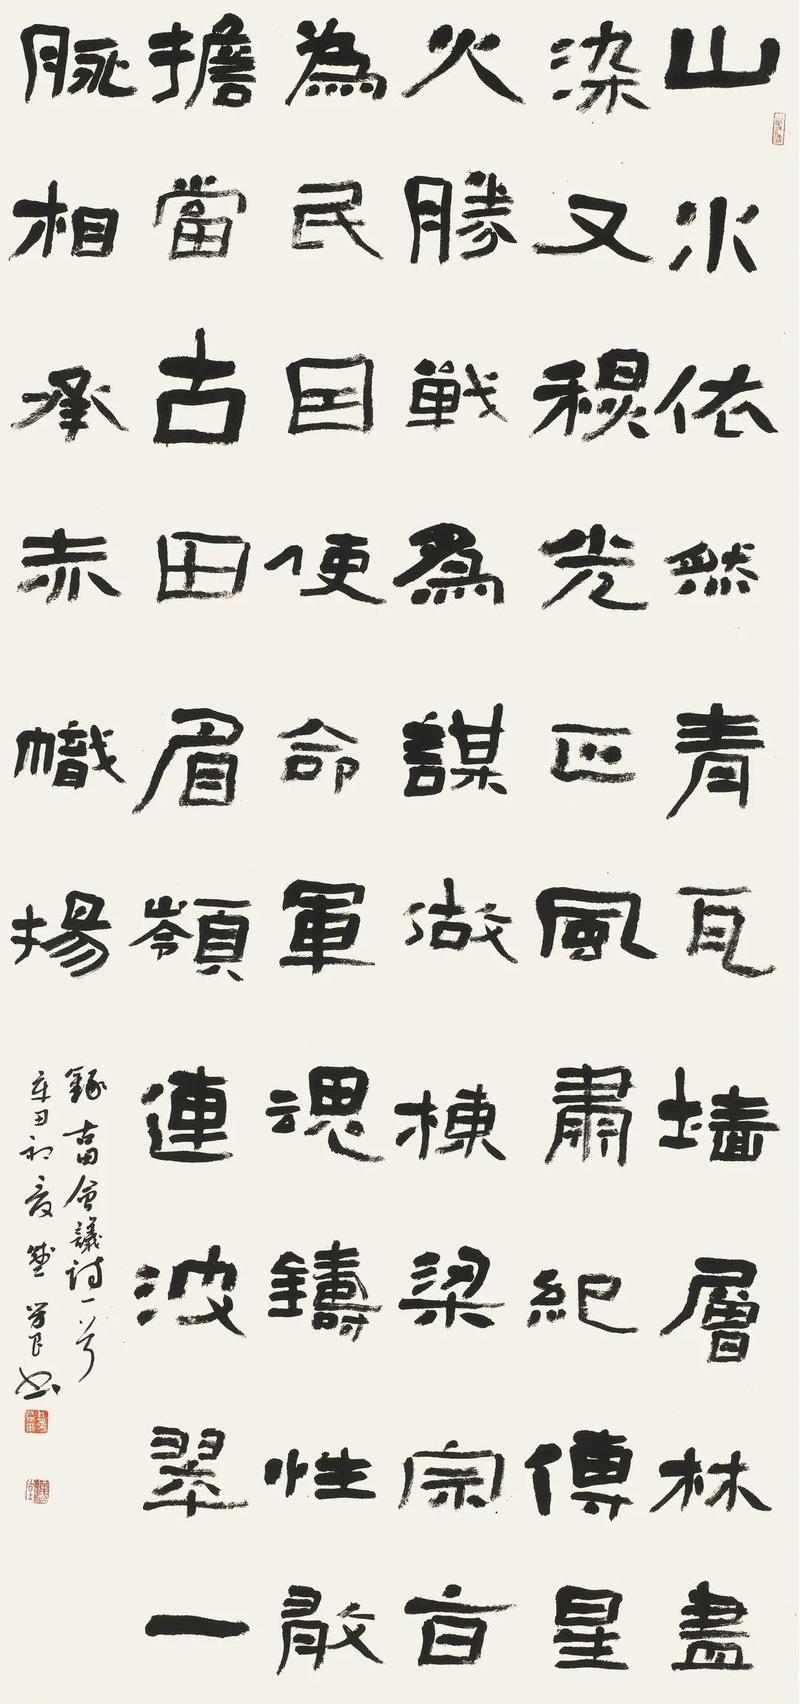 山水依然青瓦墙層林盡
染又穆光正風肅紀傳星
火勝戰爲謀做棟梁宗旨
為民囯使命軍魂鑄性敢
擔當古田眉嶺連波翠一
脈相承赤幟揚
錄古田會議詩一首
辛丑初夏書